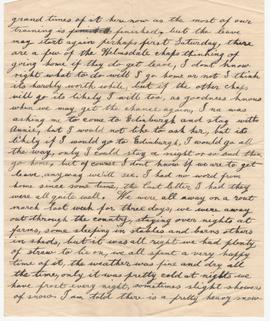 grand times of it here now as the most of our
training is finished, but the leave
may start again perhaps first Saturday, there
are a few of the Helmsdale chaps thinking of
going home if they do get leave, I don't know
right what to do will I go home or not I think
its hardly worth while, but if the other chaps
will go its likely I will too, as goodness knows
when we may get the chance again, I was
asking me to come to Edinburgh and stay with
Annie, but I would not like to ask her, but its
likely if I would go to Edinburgh, I would go all
the way, only I could stay a night or so and then
go home, but of course I don't know if we are to get
leave, anyway we'll see. I had no word from
home since some time, the last letter I had they
were all quite well. We were all away on a rout
march last week for three days, we were away
out through the country, staying over night at
farms, some sleeping in stables and barns others
in sheds, but it was all right we had plenty
of straw to lie on, we all spent a very happy
time of it, the weather was fine and dry all
the time, only it was pretty cold at nights we
have frost every night, sometimes slight showers
of snow. I am told there is a pretty heavy snow